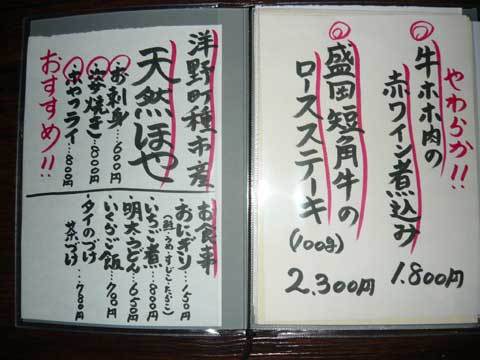 やわらか!!
牛ホホ肉の
赤ワイン煮込み
1.800円
盛岡短角牛の
ロースステーキ
(100g)
2.300円
洋野町種市産
天然ほや
お刺身…600円
姿焼き…800円
ほやフライ…800円
おすすめ!!
お食事
おにぎり…150円
(鮭・うめ・すじこ・たらこ)
いちご煮…800円
明太うどん…650円
いくらご飯…780円
タイのづけ
茶づけ…780円